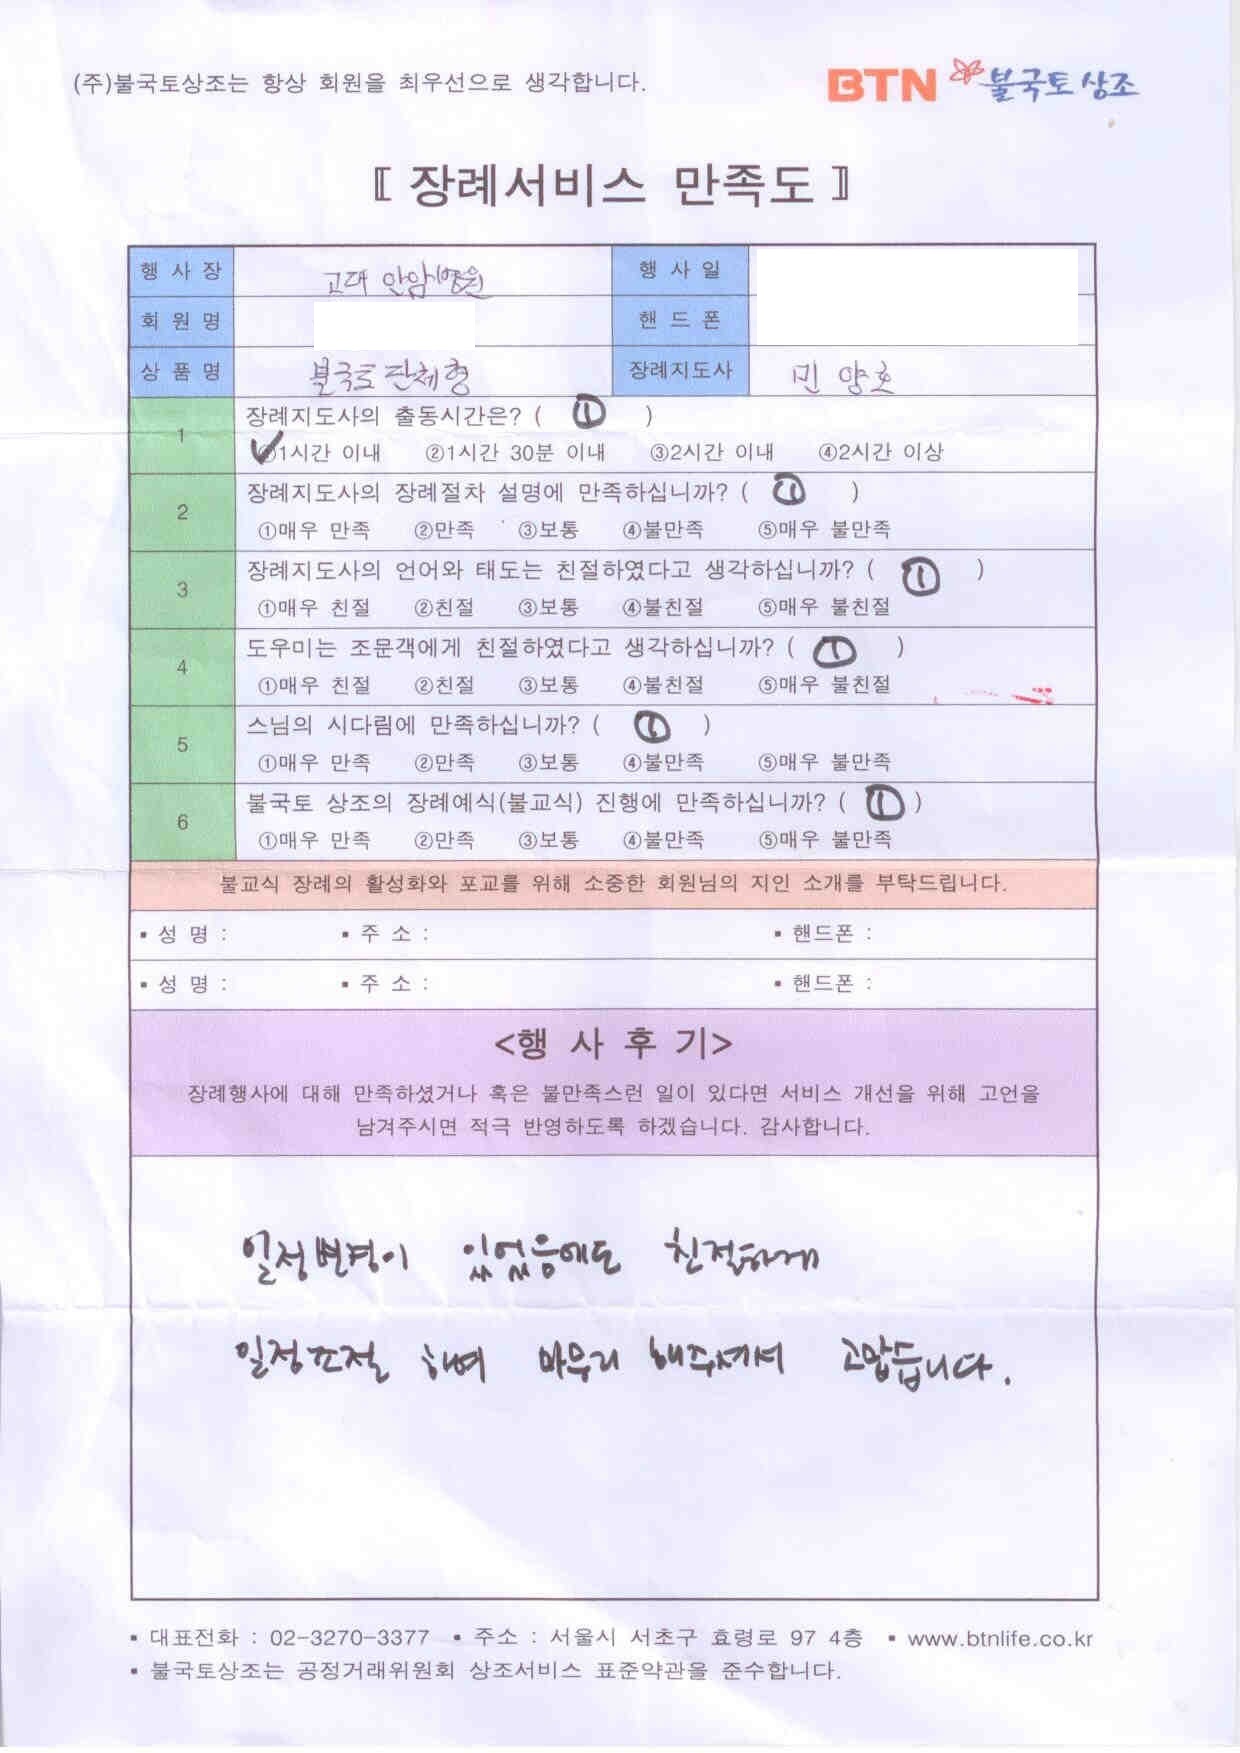 (주)불국토상조는 항상 회원을 최우선으로 생각합니다.
BTN 불국토 상조
〖 장례서비스 만족도 〗
행 사 장 고대 안암병원 행 사 일
회 원 명 핸 드 폰
상 품 명 불국토 단체형 장례지도사 민 양호
1 장례지도사의 출동시간은? ( ① )
①1시간 이내 ②1시간 30분 이내 ③2시간 이내 ④2시간 이상
2 장례지도사의 장례절차 설명에 만족하십니까? ( ① )
①매우 만족 ②만족 ③보통 ④불만족 ⑤매우 불만족
3 장례지도사의 언어와 태도는 친절하였다고 생각하십니까? ( ① )
①매우 친절 ②친절 ③보통 ④불친절 ⑤매우 불친절
4 도우미는 조문객에게 친절하였다고 생각하십니까? ( ① )
①매우 친절 ②친절 ③보통 ④불친절 ⑤매우 불친절
5 스님의 시다림에 만족하십니까? ( ① )
①매우 만족 ②만족 ③보통 ④불만족 ⑤매우 불만족
6 불국토 상조의 장례예식(불교식) 진행에 만족하십니까? ( ① )
①매우 만족 ②만족 ③보통 ④불만족 ⑤매우 불만족
불교식 장례의 활성화와 포교를 위해 소중한 회원님의 지인 소개를 부탁드립니다.
▪ 성 명 : ▪ 주 소 : ▪ 핸드폰 :
▪ 성 명 : ▪ 주 소 : ▪ 핸드폰 :
<행 사 후 기>
장례행사에 대해 만족하셨거나 혹은 불만족스런 일이 있다면 서비스 개선을 위해 고언을
남겨주시면 적극 반영하도록 하겠습니다. 감사합니다.
일정변경이 있었음에도 친절하게
일정조절 하며 마무리 해주셔서 고맙습니다.
▪ 대표전화 : 02-3270-3377 ▪ 주소 : 서울시 서초구 효령로 97 4층 ▪ www.btnlife.co.kr
▪ 불국토상조는 공정거래위원회 상조서비스 표준약관을 준수합니다.